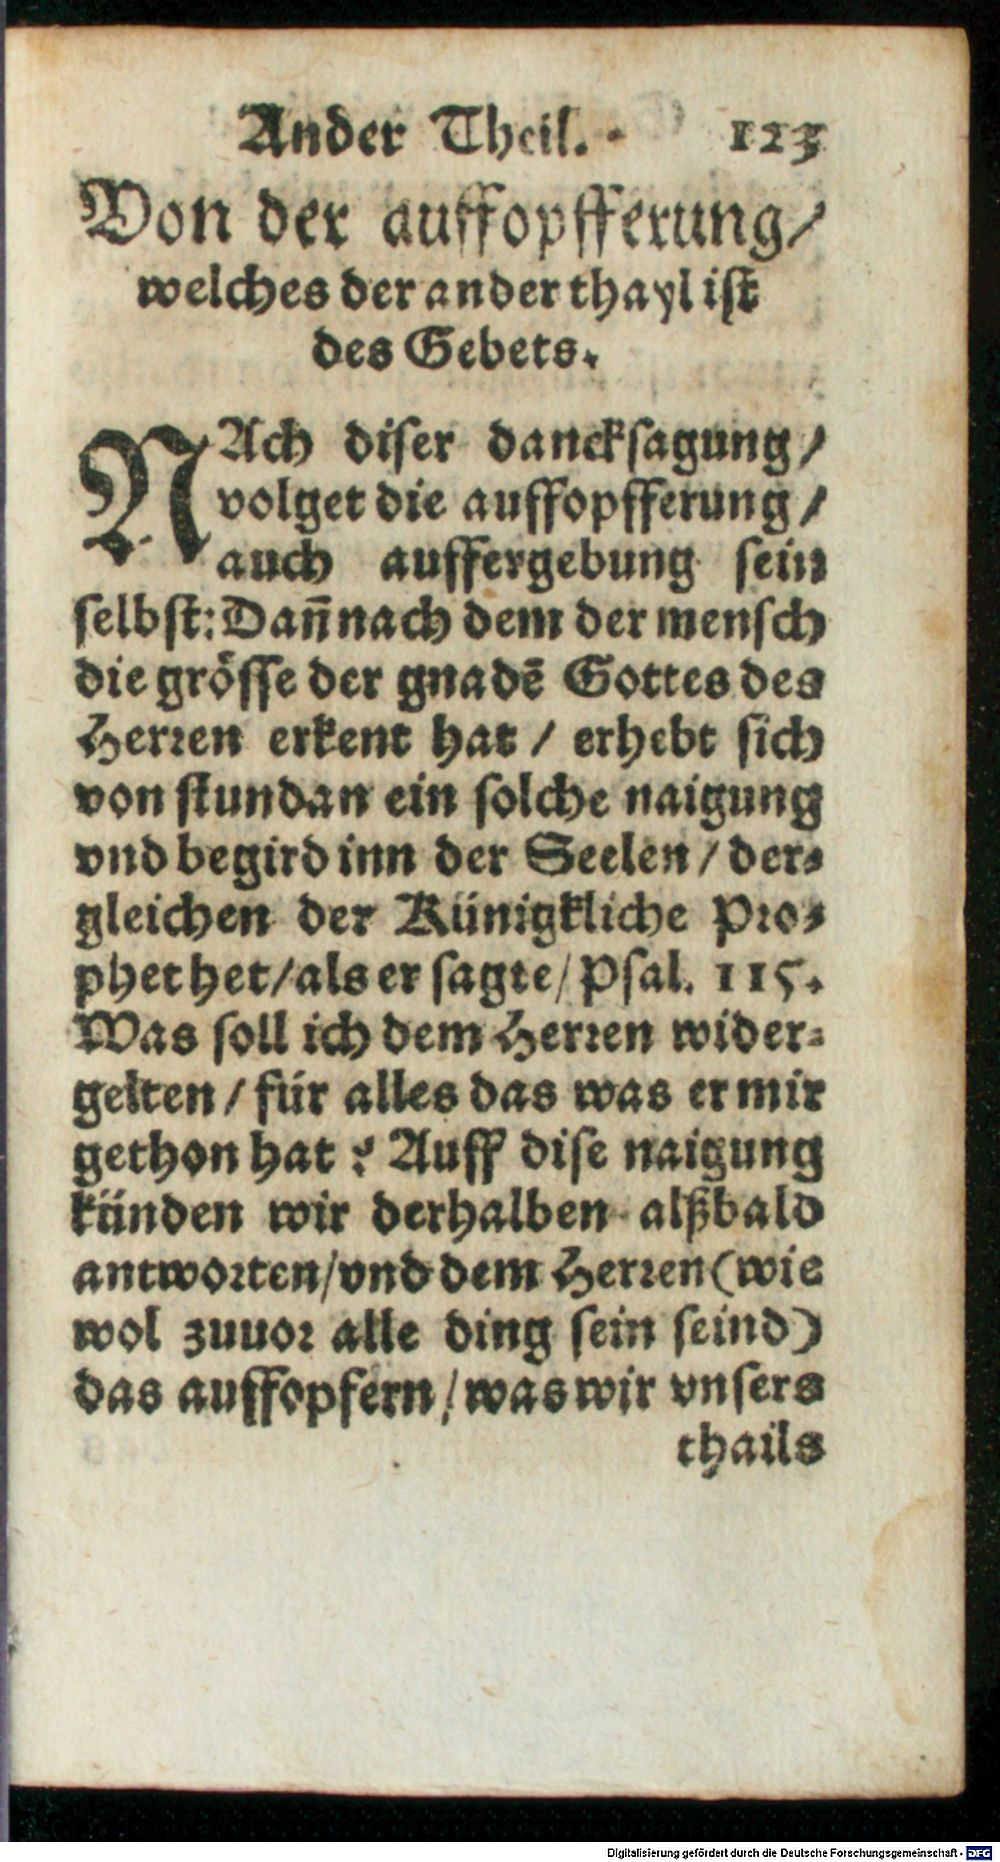 Ander Theil. 123
Von der auffopfferung/
welches der ander thayl ist
des Gebets.
NAch diser dancksagung/
volget die auffopfferung/
auch auffergebung sein
selbst: Dañ nach dem der mensch
die grösse der gnadẽ Gottes des
Herren erkent hat / erhebt sich
von stundan ein solche naigung
vnd begird inn der Seelen / der-
gleichen der Künigkliche Pro-
phet het/als er sagte/Psal. 115.
Was soll ich dem Herren wider-
gelten / für alles das was er mir
gethon hat? Auff dise naigung
künden wir derhalben alßbald
antworten/vnd dem Herren (wie
wol zuuor alle ding sein seind)
das auffopfern/was wir vnsers
thails
Digitalisierung gefördert durch die Deutsche Forschungsgemeinschaft - DFG